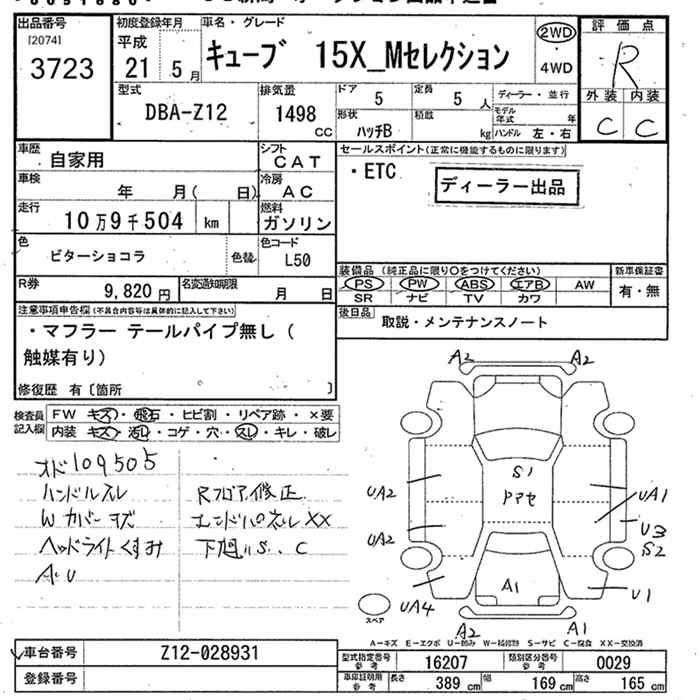 出品番号
[2074]
3723
初度登録年月
平成
21 5月
車名・グレード
キューブ 15X_Mセレクション
2WD
・
4WD
評価点
R
外装 内装
C C
型式
DBA-Z12
排気量
1498
cc
ドア
5
定員
5 人
ディーラー・並行
形状
ハッチB
積載
kg
モデル年式 年
ハンドル 左・右
車歴
自家用
シフト
CAT
車検
年 月( 日)
冷房
AC
走行
10万9千504 km
燃料
ガソリン
色
ビターショコラ
色替
色コード
L50
R券
9,820円
名変通知期限
月 日
セールスポイント(正常に機能するものに限ります)
・ETC
ディーラー出品
装備品(純正品に限り〇をつけてください)
PS PW ABS エアB AW
SR ナビ TV カワ
新車保証書
有・無
後日品
取説・メンテナンスノート
注意事項申告欄(不具合内容等は具体的に記入して下さい)
・マフラー テールパイプ無し(
触媒有り)
修復歴 有〔箇所 〕
検査員
記入欄
FW キズ・飛石・ヒビ割・リペア跡・×要
内装 キズ・汚レ・コゲ・穴・スレ・キレ・破レ
オド109505
ハンドルスレ
Wカバーキズ
ヘッドライトくすみ
A・U
Rフロア修正
エンドパネルXX
下廻りS、C
A2 A2
S1
UA2
UA1
UA2
U3
S2
A1
UA4
U1
スペア
A2 A1
A-キズ E-エクボ U-凹み W-補修跡 S-サビ C-腐食 XX-交換済
車台番号
Z12-028931
登録番号
型式指定番号
参考
16207
類別区分番号
参考
0029
車庫証明用
参考
長さ 389 cm 幅 169 cm 高さ 165 cm